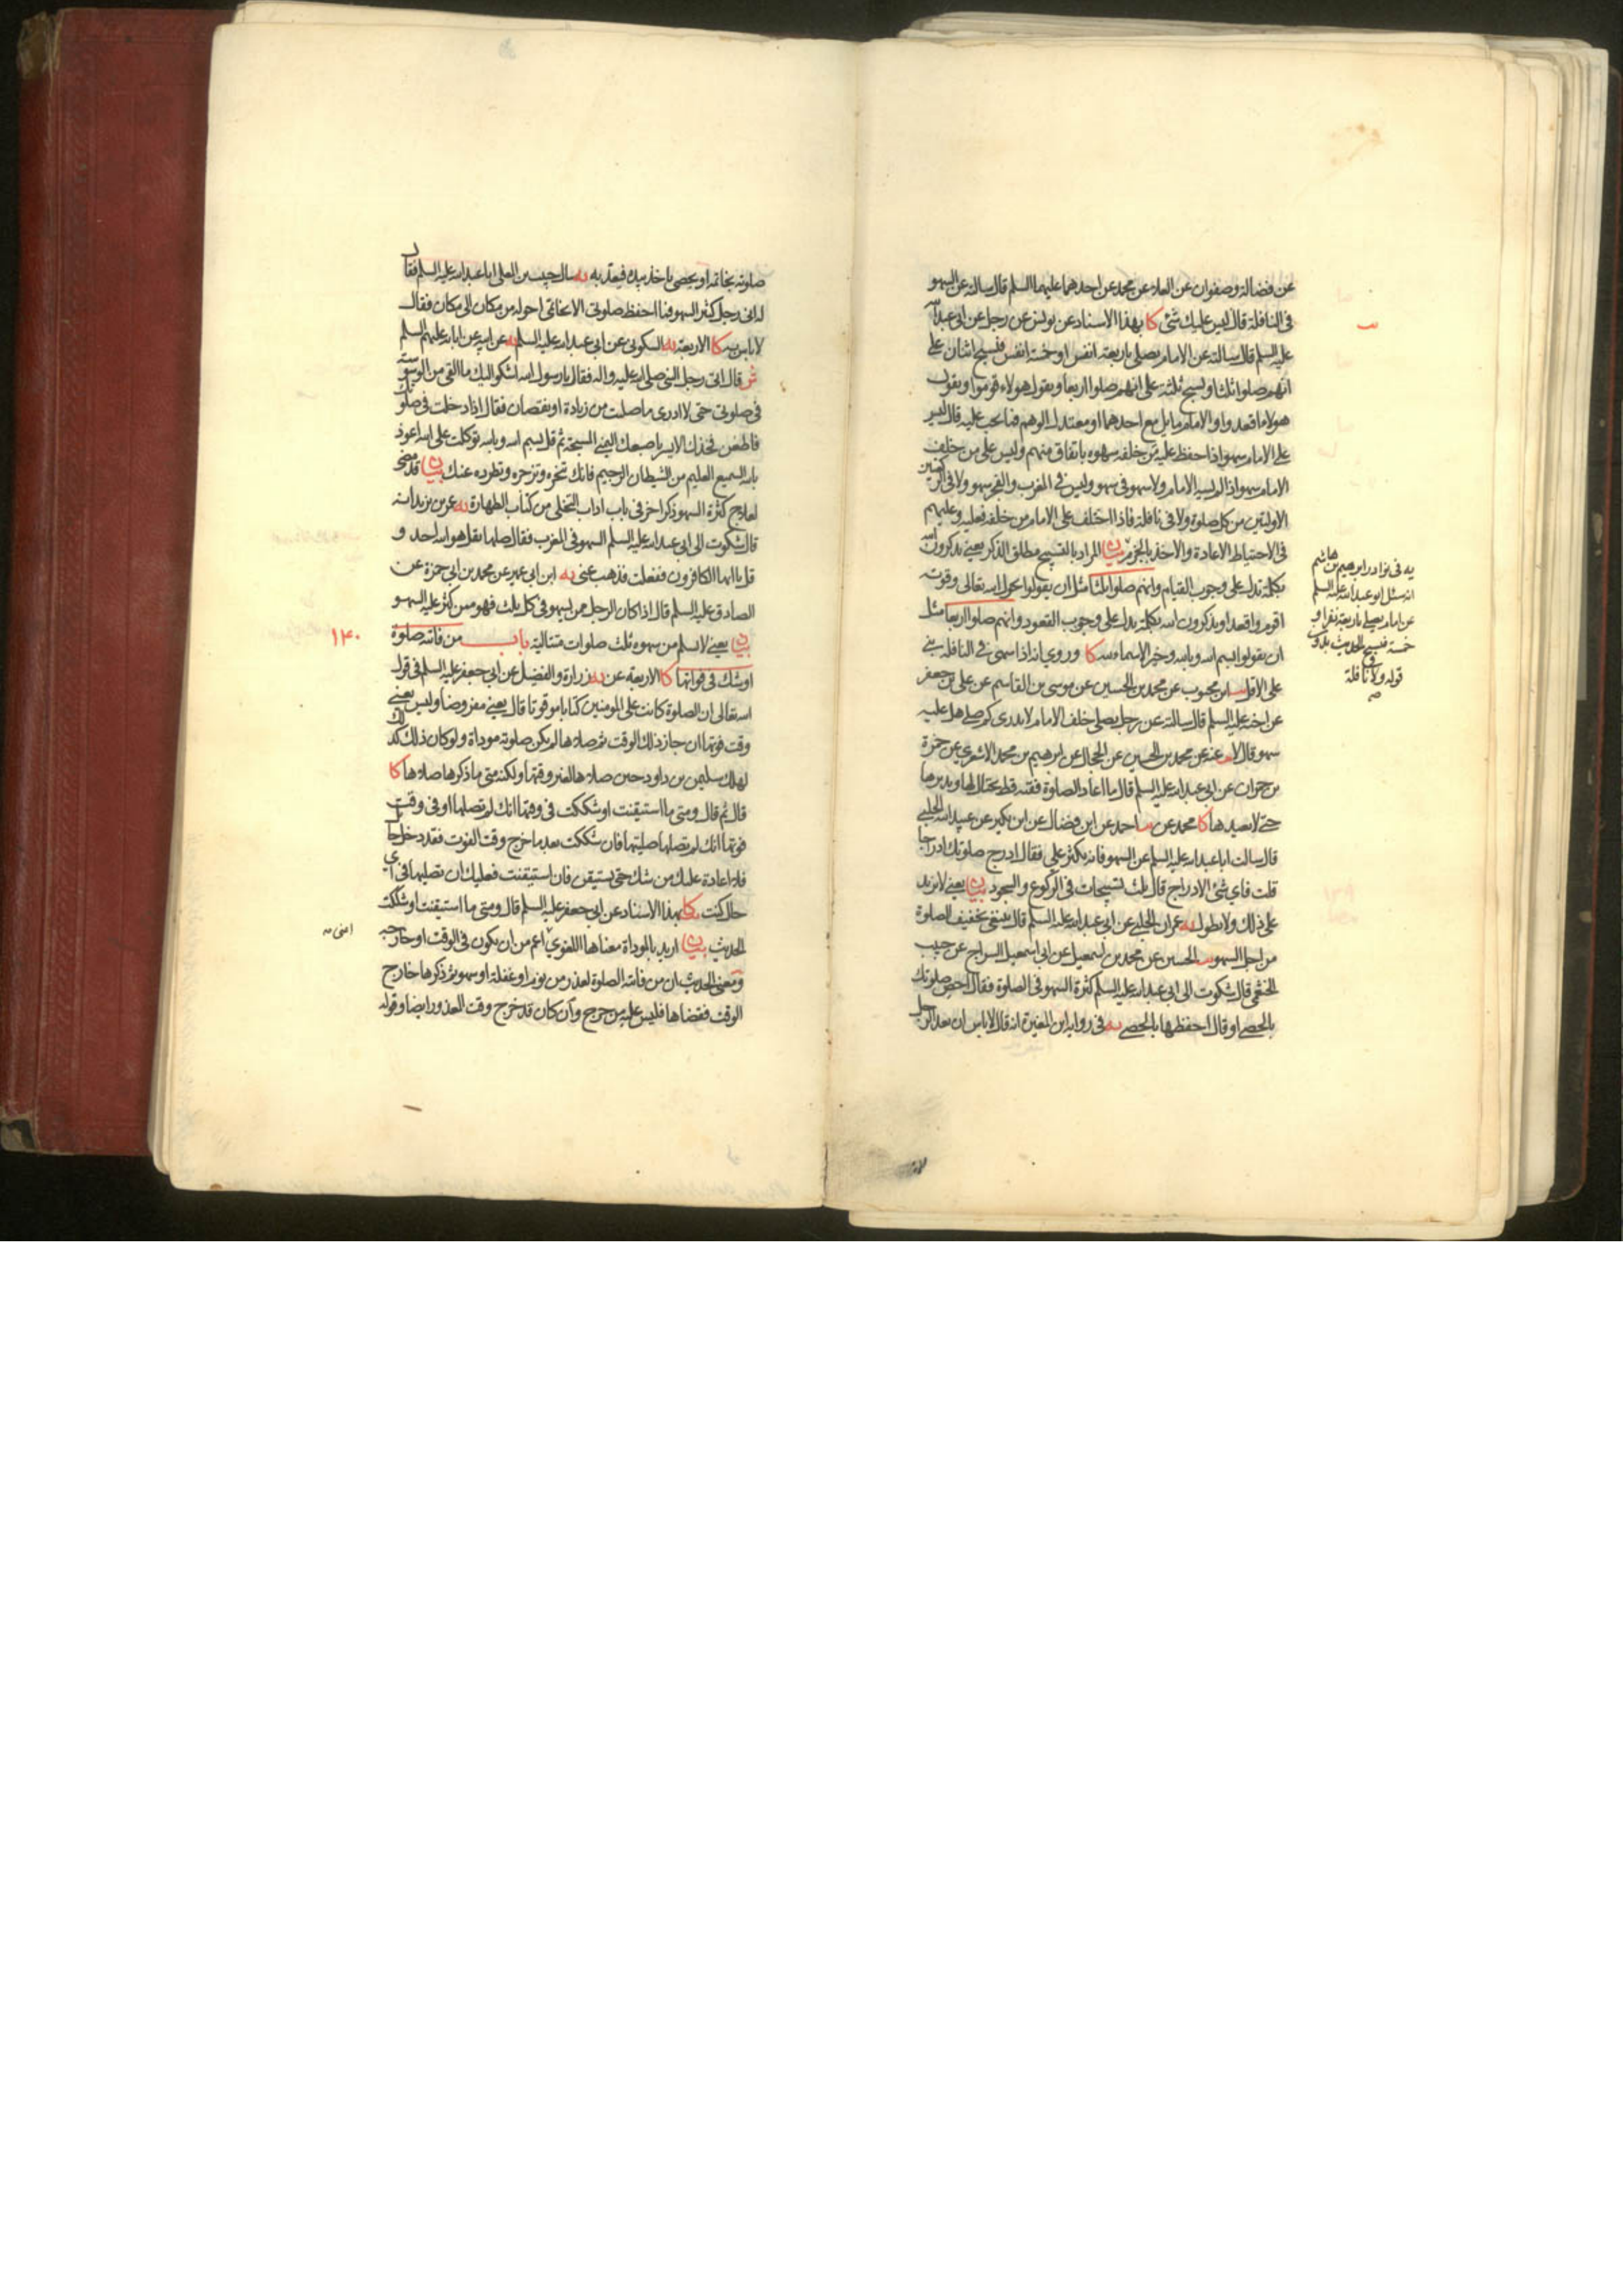 عن فضالة وصفوان عن العلاء عن محمد عن احدهما عليهما السلم قال سالته عن السهو
في النافلة قال ليس عليك شئ كا بهذا الاسناد عن يونس عن رجل عن ابي عبد الله
عليه السلم قال سالته عن الامام يصلي باربعة انفس او خمسة انفس فيسبح اثنان على
انهم صلوا ثلثا ويسبح ثلثة على انهم صلوا اربعا ويقول هولاء قوموا ويقول
هولاء اقعدوا والامام مايل مع احدهما او معتدل الوهم فما يجب عليه قال ليس
على الامام سهو اذا حفظ عليه من خلفه سهوه باتفاق منهم وليس على من خلف
الامام سهو اذا لم يسه الامام ولا سهو في سهو وليس في المغرب والفجر سهو ولا في الركعتين
الاوليين من كل صلوة ولا في نافلة فاذا اختلف على الامام من خلفه فعليه وعليهم
في الاحتياط الاعادة والاخذ بالجزم بيان المراد بالتسبيح مطلق الذكر يعني يذكرون الله
بكلمة تدل على وجوب القيام وانهم صلوا ثلثا مثل ان يقولوا بحول الله تعالى وقوته
اقوم واقعد او يذكرون الله بكلمة يدل على وجوب القعود وانهم صلوا اربعا مثل
ان يقولوا بسم الله وبالله وخير الاسماء لله كا وروي انه اذا سهى في النافلة بنى
على الاقل ابن محبوب عن محمد بن الحسين عن موسى بن القاسم عن علي بن جعفر
عن اخيه عليه السلم قال سالته عن رجل يصلي خلف الامام لا يدري كم صلى هل عليه
سهو قال لا عنه عن محمد بن الحسين عن الحجال عن ابرهيم بن محمد الاشعري عن حمزة
بن حمران عن ابي عبد الله عليه السلم قال ما اعاد الصلوة فقيه قط يحتال لها ويدبرها
حتى لا يعيدها كا محمد عن احمد عن ابن فضال عن ابن بكير عن عبيد الله الحلبي
قال سالت ابا عبد الله عليه السلم عن السهو فانه يكثر علي فقال ادرج صلوتك ادراجا
قلت فاي شئ الادراج قال ثلث تسبيحات في الركوع والسجود بيان يعني لا يزيد
على ذلك ولا يطول يه عمران الحلبي عن ابي عبد الله عليه السلم قال ينبغي تخفيف الصلوة
من اجل السهو الحسين عن محمد بن اسمعيل عن ابي اسمعيل السراج عن حبيب
الخثعمي قال شكوت الى ابي عبد الله عليه السلم كثرة السهو في الصلوة فقال احص صلوتك
بالحصى او قال احفظها بالحصى يه في رواية ابن المغيرة انه قال لا باس ان يعد الرجل
يه في نوادر ابرهيم بن هاشم
انه سئل ابو عبد الله عليه السلم
عن امام يصلي باربعة نفر او
خمسة فيسبح الحديث بدون
قوله ولا في نافلة
صلوته بخاتمه او بحصى ياخذ بيده فيعد به يه سال حبيب بن المعلى ابا عبد الله عليه السلم فقال
له اني رجل كثير السهو فما احفظ صلوتي الا بخاتمي احوله من مكان الى مكان فقال
لا باس به كا الاربعة يه السكوني عن ابي عبد الله عليه السلم يه عن ابيه عن ابائه عليهم السلم
ش قال اتى رجل النبي صلى الله عليه واله فقال يا رسول الله اشكو اليك ما القى من الوسوسة
في صلوتي حتى لا ادري ما صليت من زيادة او نقصان فقال اذا دخلت في صلوتك
فاطعن فخذك الايسر باصبعك اليمنى المسبحة ثم قل بسم الله وبالله توكلت على الله اعوذ
بالله السميع العليم من الشيطان الرجيم فانك تنحره وتزجره وتطرده عنك بيان قد مضى
لعلاج كثرة السهو ذكر اخر في باب اداب التخلي من كتاب الطهارة يه عمر بن يزيد انه
قال شكوت الى ابي عبد الله عليه السلم السهو في المغرب فقال صلها بقل هو الله احد و
قل يا ايها الكافرون ففعلت فذهب عني يه ابن ابي عمير عن محمد بن ابي حمزة عن
الصادق عليه السلم قال اذا كان الرجل ممن يسهو في كل ثلث فهو ممن كثر عليه السهو
بيان يعني لا يسلم من سهوه ثلث صلوات متتالية باب من فاتته صلوة
۱۴۰
او شك في فواتها كا الاربعة عن يه زرارة والفضيل عن ابي جعفر عليه السلم في قول
الله تعالى ان الصلوة كانت على المومنين كتابا موقوتا قال يعني مفروضا وليس يعني
وقت فوتها ان جاز ذلك الوقت ثم صلاها لم يكن صلوته موداة ولو كان ذلك كذلك
لهلك سليمن بن داود حين صلاها لغير وقتها ولكنه متى ما ذكرها صلاها كا
قال ثم قال ومتى ما استيقنت او شككت في وقتها انك لم تصلها او في وقت
فوتها انك لم تصلها صليتها فان شككت بعد ما خرج وقت الفوت فقد دخل حايل
فلا اعادة عليك من شك حتى يستيقن فان استيقنت فعليك ان تصليها في اي
حال كنت كا بهذا الاسناد عن ابي جعفر عليه السلم قال ومتى ما استيقنت او شككت
الحديث بيان اريد بالموداة معناها اللغوي اعم من ان يكون في الوقت او خارجه
ومعنى الحديث ان من فاتته الصلوة لعذر من نوم او غفلة او سهو ثم ذكرها خارج
الوقت فقضاها فليس عليه من حرج وان كان قد خرج وقت العذر ايضا وقوله